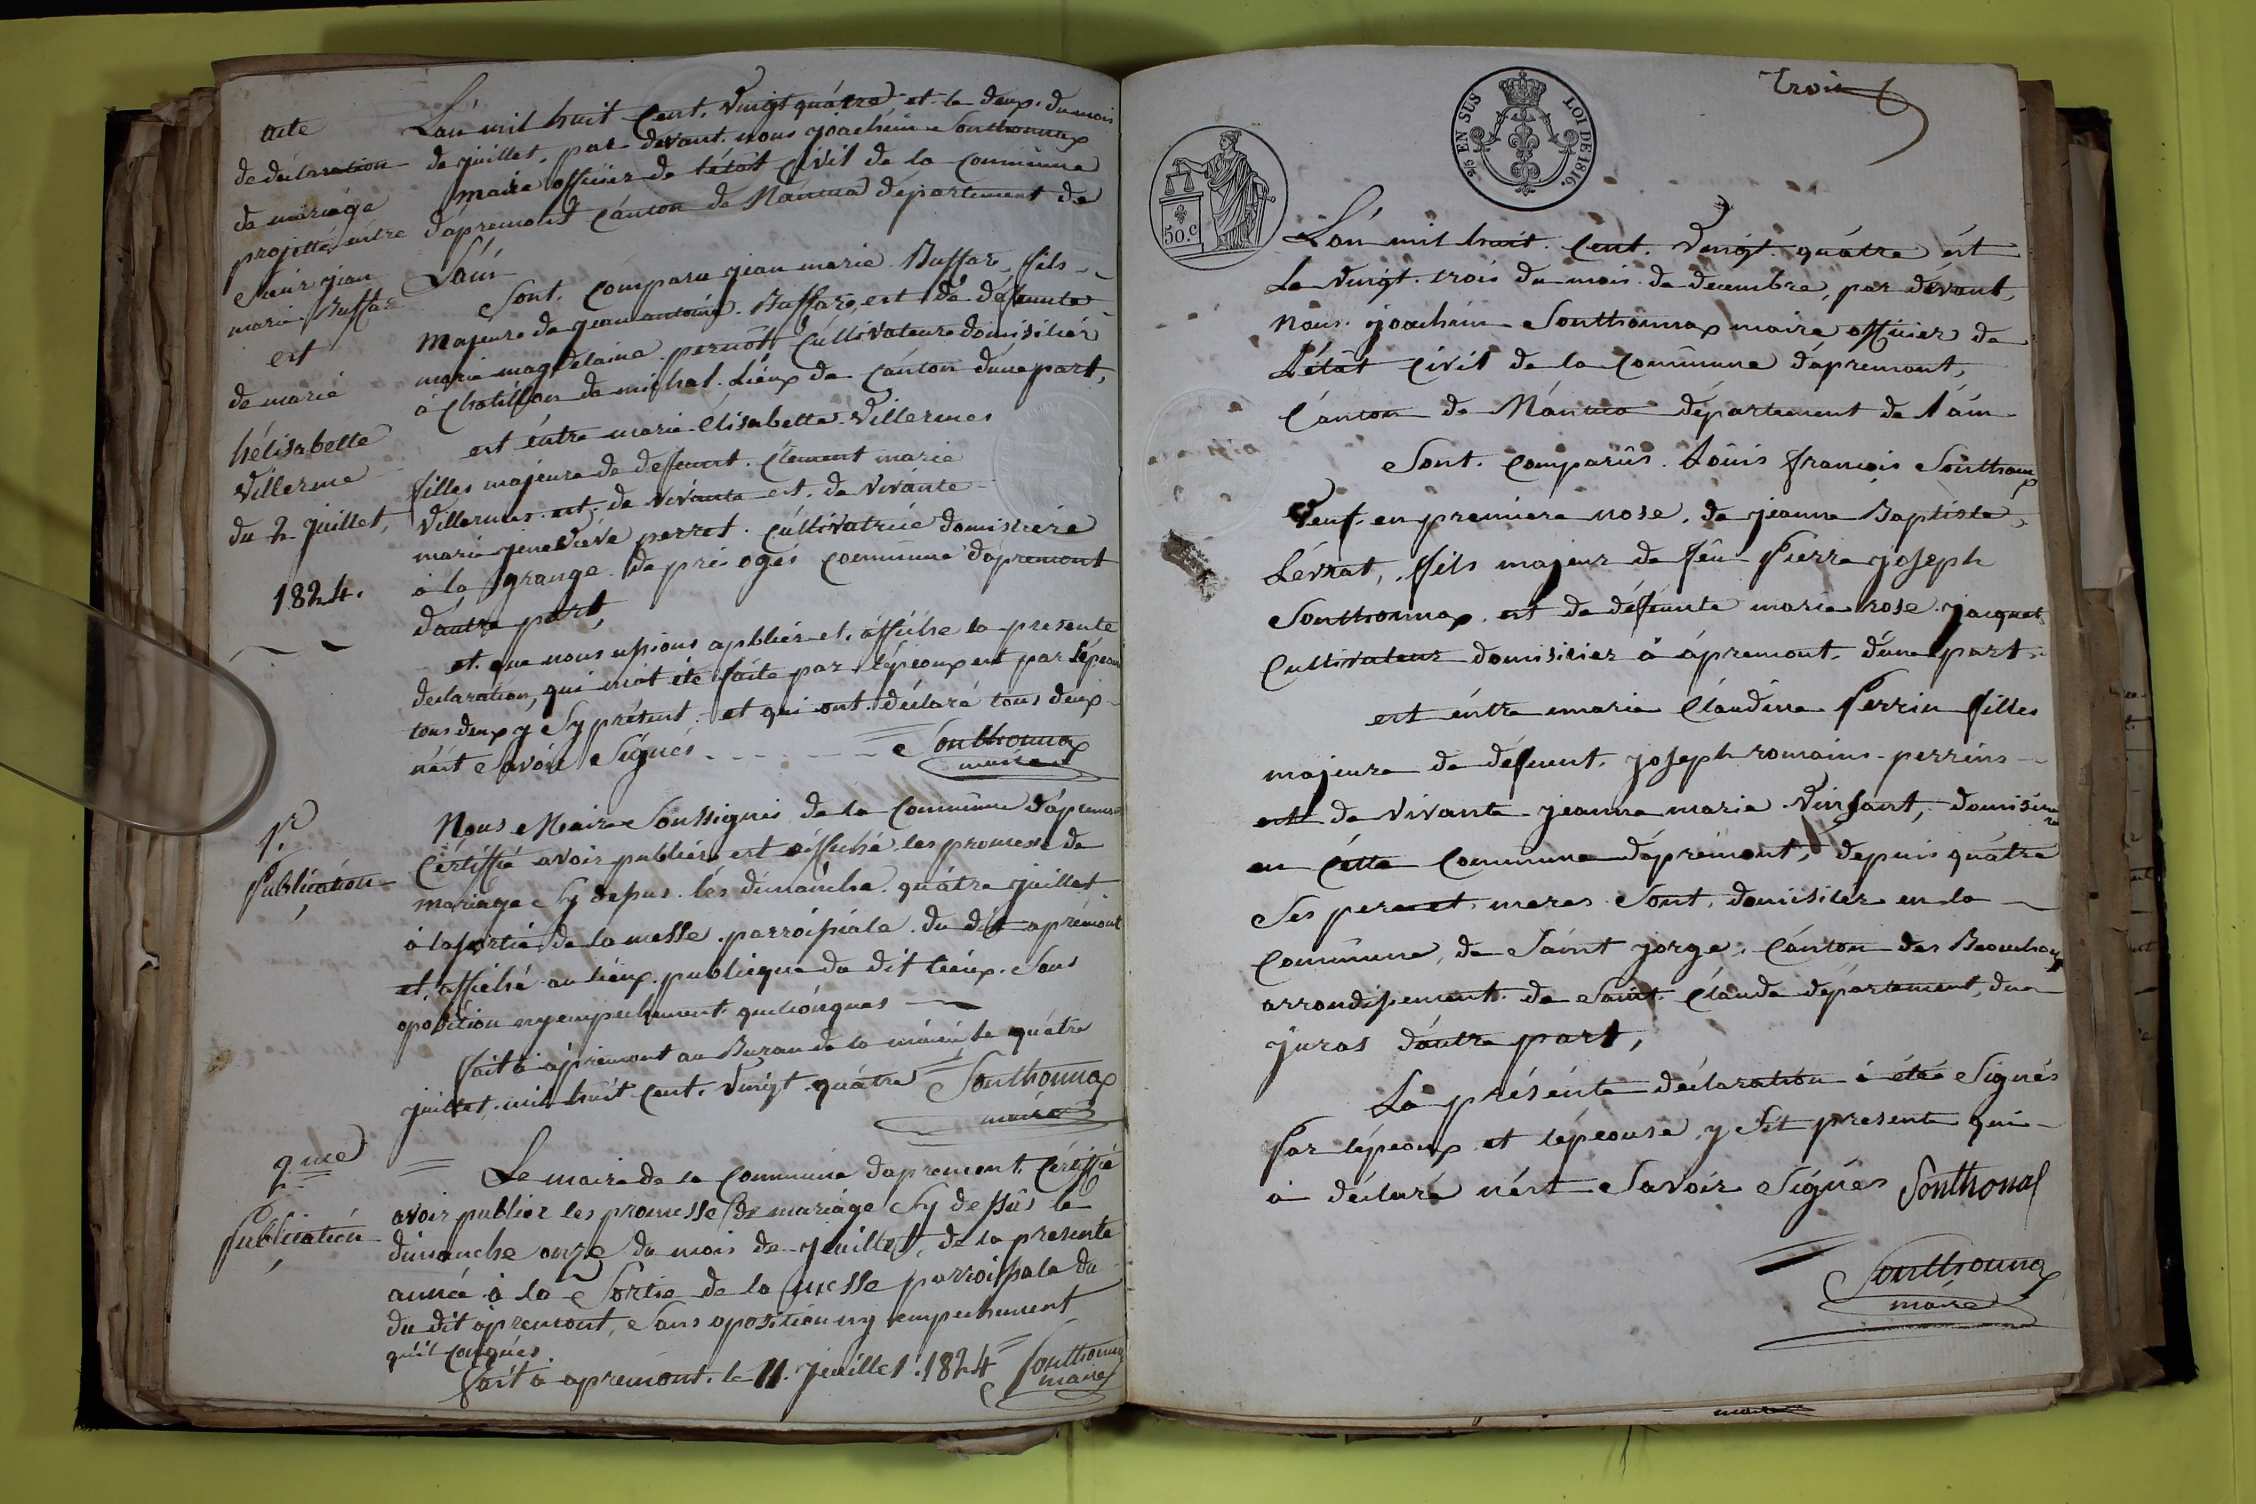 acte
de déclaration
de mariage
projetté entre
sieur jean
marie Buffar
est
de marie
hélisabette
Villerme
du 2 juillet,
1824.
L'an mil huit Cent. Vingt quátre et le deux du mois
de juillet, par devant nous joachim Sonthonnax
maire officier de létat Civil de la Commune
dápremont Cánton de Nántua département de
Láin
Sont. Comparu jean marie Buffar, fils
majeure de jean antoine Buffard, est de défunte
marie magdelaine pernod, Cultivateure domisilier
à Chatillon de michal. Lieux de Cánton dune part,
est éntre marie élisabette Villermes
filles majeure de defeunt. Clement marie
Villermes est de vivante est. de vivánte
marie jenevieve perret. Cultivatrice domisiliere
à la grange de prés ogés commune dápremont
dáutre part,
et. que nous ussions apblier et. áffiche la presente
declaration, qui niot été faite par lépeoux est par lépeou
tous deux y Sy présent. et qui ont. déclaré tous deux
nést Savoir Signés - - - - Sonthonnax
maire
1.r
Publication
Nous Maire Soussignés de la Commune dápremont
Certiffié avoir publiér est áffiché les promesse de
mariage Sy depus. lés dimanche quátre juillet
à la sortie de la messe parroissiale. du dit apremont
et, affiché au lieux publicque du dit lieux. Sans
oposition ny empechement quelconques
fait à ápremont au Bureau de la mairie le quátre
juillet, mil huit Cent. Vingt. quátre Sonthonnax
maire
2.me
Publication
Le maire de la Commune dapremont Certiffié
avoir publier les promesse de mariáge Sy dessûs le
dimanche onze du mois de juillet, de la presente
année à la Sortie de la messe parroissale du
du dit apremont, Sans oposition ny empechement
quil conqués.
fait à apremont. le 11. juillet. 1824 Sonthonnax
maire
Trois
25 EN SUS LOI DE 1816.
50.c
L'án mil huit. Cent. Vingt. quátre ést
Le Vingt. trois du mois de decembre, par dévant,
Nous. joachim Sonthonnax maire officier de
L'état Civil de la Commune dápremont,
Cánton de Nántua département de lain
Sont. Comparûs. Loûis françois Sonthonn
ax
Veuf. en premiere nose. de jeanne Baptiste
Lévrat, fils majeur de feu Pierre joseph
Sonthonnax est de défeunte marie rose jacquet
Cultivateur domisilier à ápremont. dune part.
est éntre marie Claudine Perrin filles
majeure de défeunt. joseph romains perrins
est de vivante jeanne marie Vinsant, domisilie
re
en cétte Commune dápremont, depuis quátre
Ses pere et. meres Sont. domisilér en la
Commune, de Saint jorge, Cánton des Beouchou
x
arrondissement de Saint Claude département, du
juras dáutre part,
La présénte déclaration à été Signés
Par lépeoux et lépeouse, y Sit presente qui
à déclaré nést Savoir Signés Sonthonax
Sonthonnax
maire
maire